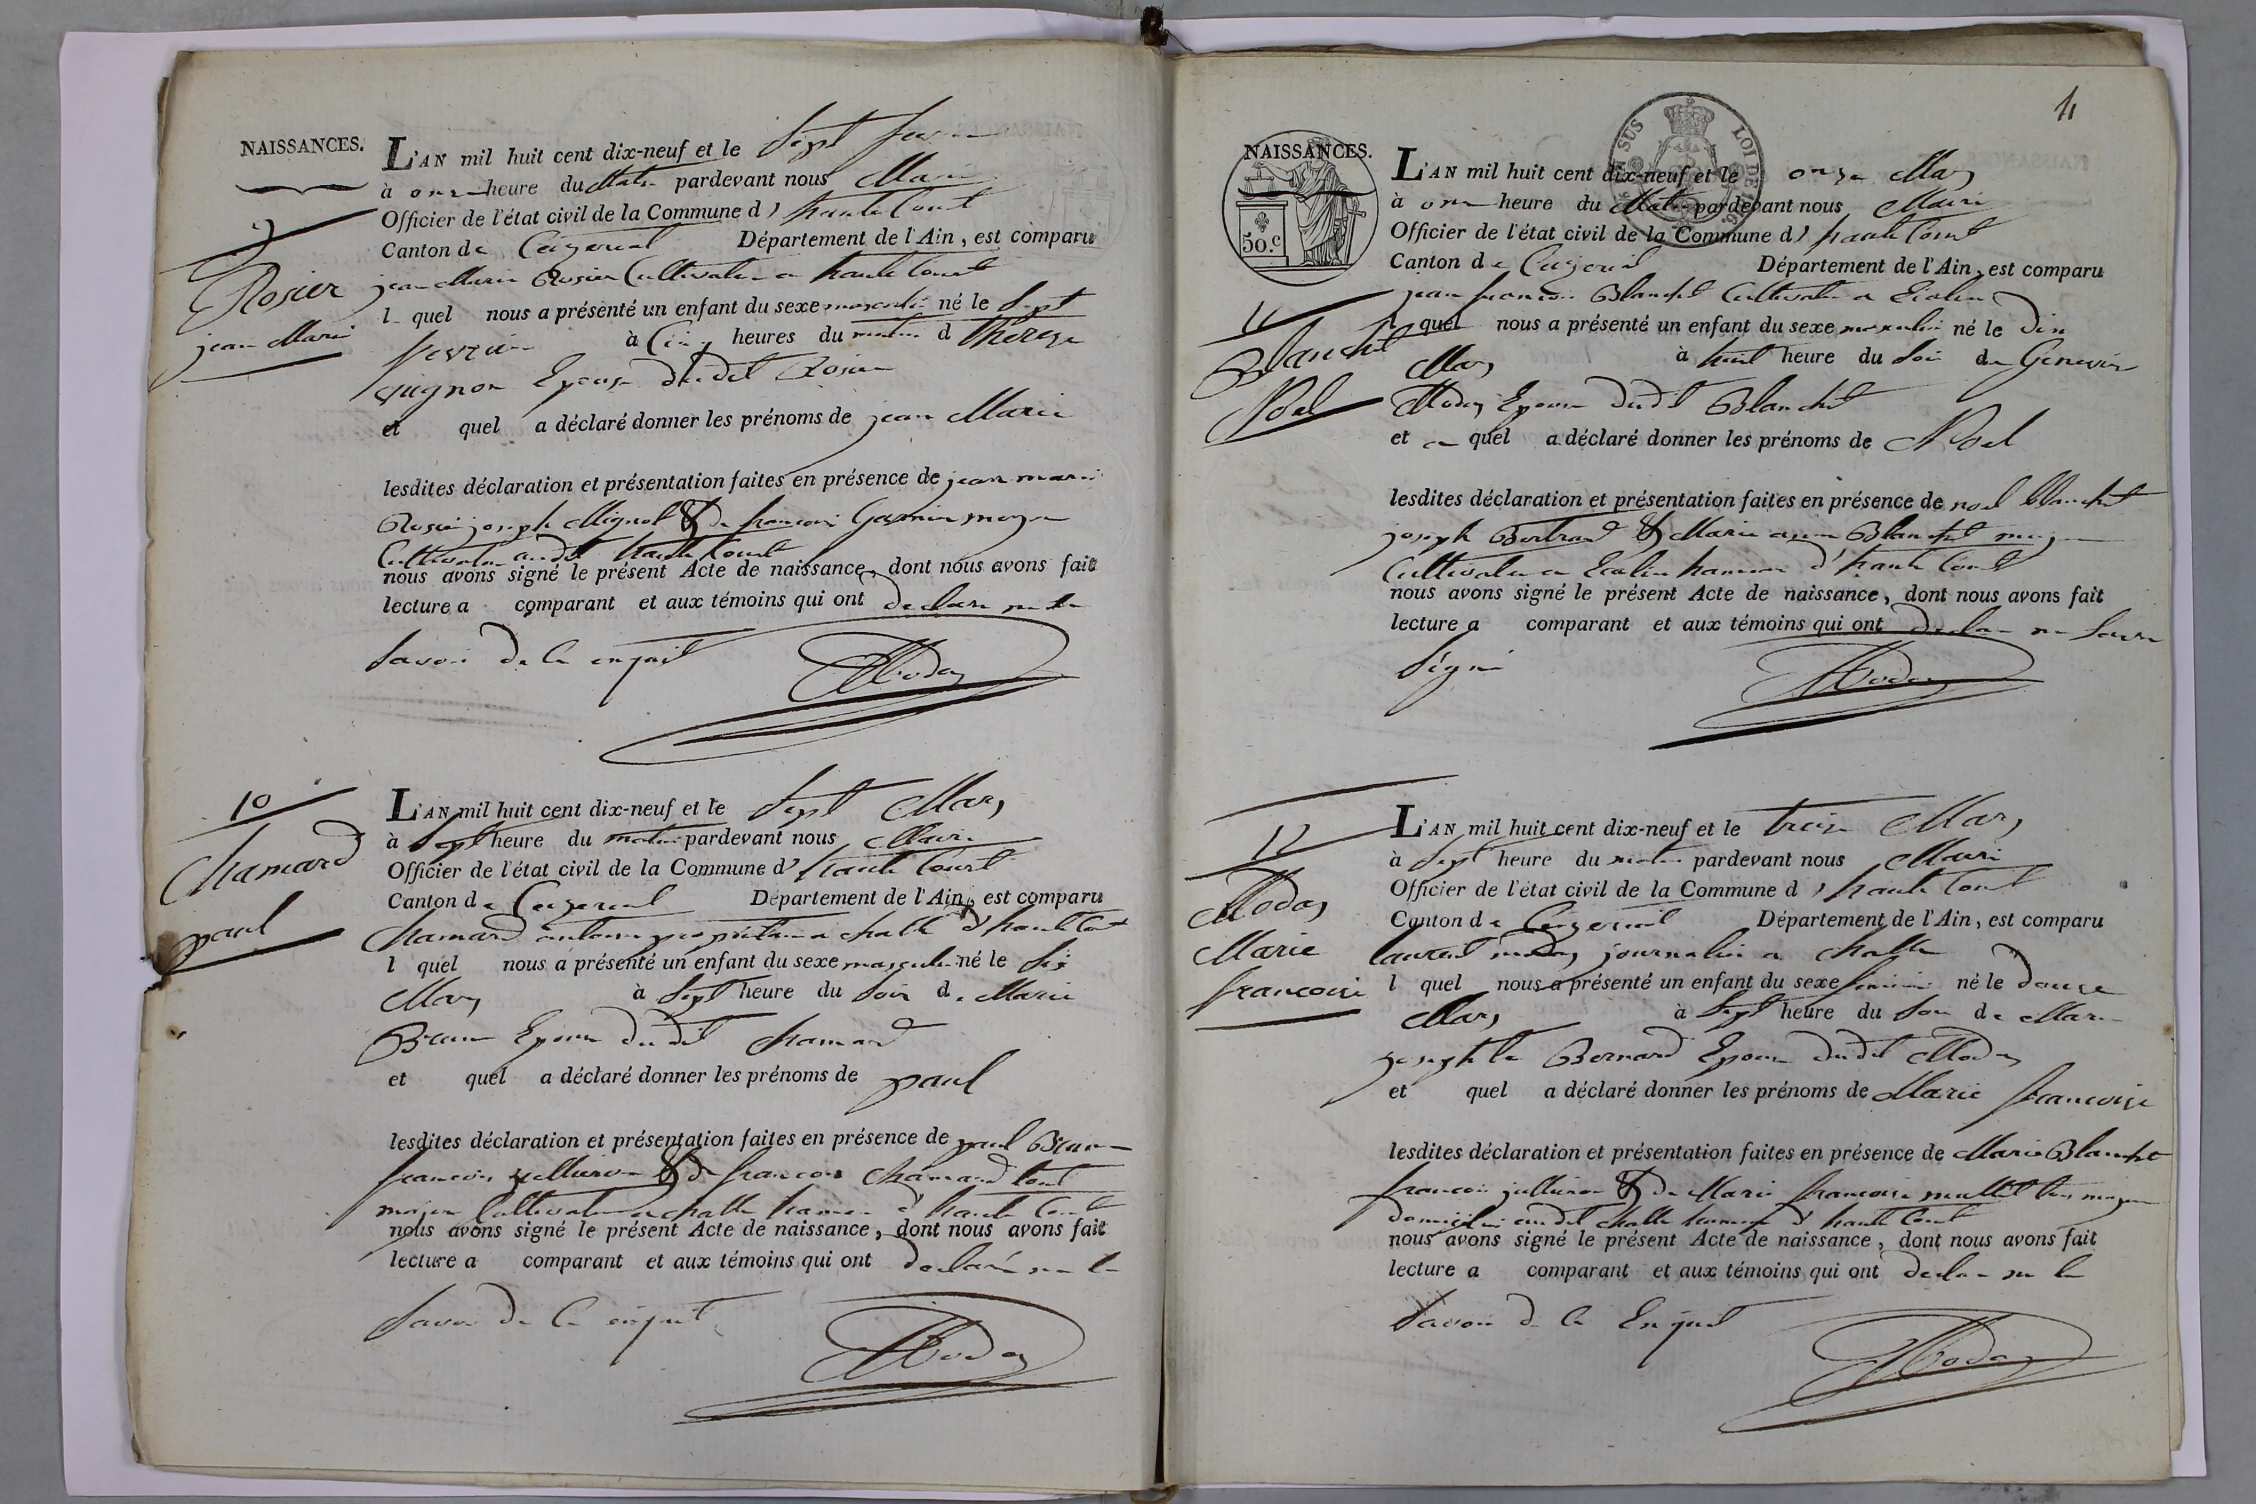 NAISSANCES.
9
Rosier
jean Marie
L'AN mil huit cent dix-neuf et le Sept
à onze heure du Matin pardevant nous Maire
Officier de l'état civil de la Commune d' hautecourt
Canton de Ceyzeriat Département de l'Ain, est comparu
jean Marie Rosier Cultivateur a hautecourt
l quel nous a présenté un enfant du sexe masculin né le Sept
fevrier à Cinq heures du matin d Thérèse
guignon Epouse dudit Rosier
et quel a déclaré donner les prénoms de jean Marie
lesdites déclaration et présentation faites en présence de jean marie
Rosier joseph Mignot & de francois
Cultivateur audit hautecourt
nous avons signé le présent Acte de naissance, dont nous avons fait
lecture a comparant et aux témoins qui ont declare ne le
Savoir de ce enquit
Moday
10
Chamard
paul
L'AN mil huit cent dix-neuf et le Sept Mars
à Sept heure du matin pardevant nous Maire
Officier de l'état civil de la Commune d' hautecourt
Canton de Ceyzeriat Département de l'Ain, est comparu
Chamard antoine proprietaire a challe d'hautecourt
l quel nous a présenté un enfant du sexe masculin né le Six
Mars à Sept heure du Soir de Marie
Epouse dudit chamard
et quel a déclaré donner les prénoms de paul
lesdites déclaration et présentation faites en présence de paul
francois & de francois chamard tout
majeur Cultivateur a challe hameau d' hautecourt
nous avons signé le présent Acte de naissance, dont nous avons fait
lecture a comparant et aux témoins qui ont declaré ne le
Savoir de ce enquit
Moday
11
NAISSANCES.
50.c
EN SUS LOI DE
11
Blanchet
Noel
L'AN mil huit cent dix-neuf et le onze Mars
à onze heure du Matin pardevant nous Maire
Officier de l'état civil de la Commune d' hautecourt
Canton de Ceyzeriat Département de l'Ain, est comparu
jean francois Blanchet Cultivateur a
l quel nous a présenté un enfant du sexe masculin né le dix
Mars à huit heure du Soir de Genevieve
Moday Epouse dudit Blanchet
et quel a déclaré donner les prénoms de Noel
lesdites déclaration et présentation faites en présence de noel blanchet
joseph Bertrand & Marie Blanchet
Cultivateur a hameau d'hautecourt
nous avons signé le présent Acte de naissance, dont nous avons fait
lecture a comparant et aux témoins qui ont declare ne Savoir
Signé
Moday
12
Moday
Marie
francoise
L'AN mil huit cent dix-neuf et le treize Mars
à Sept heure du matin pardevant nous Maire
Officier de l'état civil de la Commune d' hautecourt
Canton de Ceyzeriat Département de l'Ain, est comparu
laurent moday journalier a challe
l quel nous a présenté un enfant du sexe feminin né le douze
Mars à Sept heure du Soir de Marie
josephte Bernard Epouse dudit Moday
et quel a déclaré donner les prénoms de Marie francoise
lesdites déclaration et présentation faites en présence de Marie Blanchet
francois & de Marie francoise
audit challe hameau d' hautecourt
nous avons signé le présent Acte de naissance, dont nous avons fait
lecture a comparant et aux témoins qui ont declare ne le
Savoir de ce Enquit
Moday